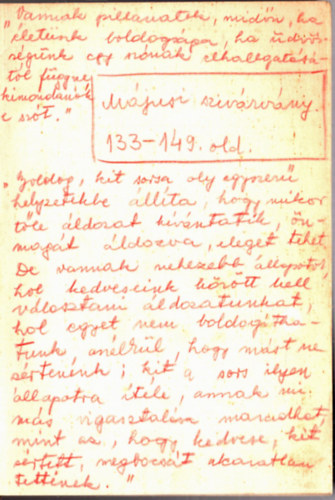 „Vannak pillanatok, midőn, ha
életünk boldogsága, ha üdvös-
ségünk egy szónak elhallgatásá-
tól függne,
kimondanók
e szót."
Májusi szivárvány.
133-149. old.
„Boldog, kit sorsa oly egyszerű
helyzetekbe állíta, hogy mikor
tőle áldozat kívántatik, ön-
magát áldozva, eleget tehet
De vannak nehezebb állapotok
hol kedveseink között kell
választani áldozatunkat,
hol egyet nem boldogítha-
tunk anélkül, hogy mást ne
sértenénk; kit a sors ilyen
állapotra ítéle, annak mi
más vigasztalása maradhat,
mint az, hogy kedvese, kit
sértett, megbocsát akaratlan
tettének."